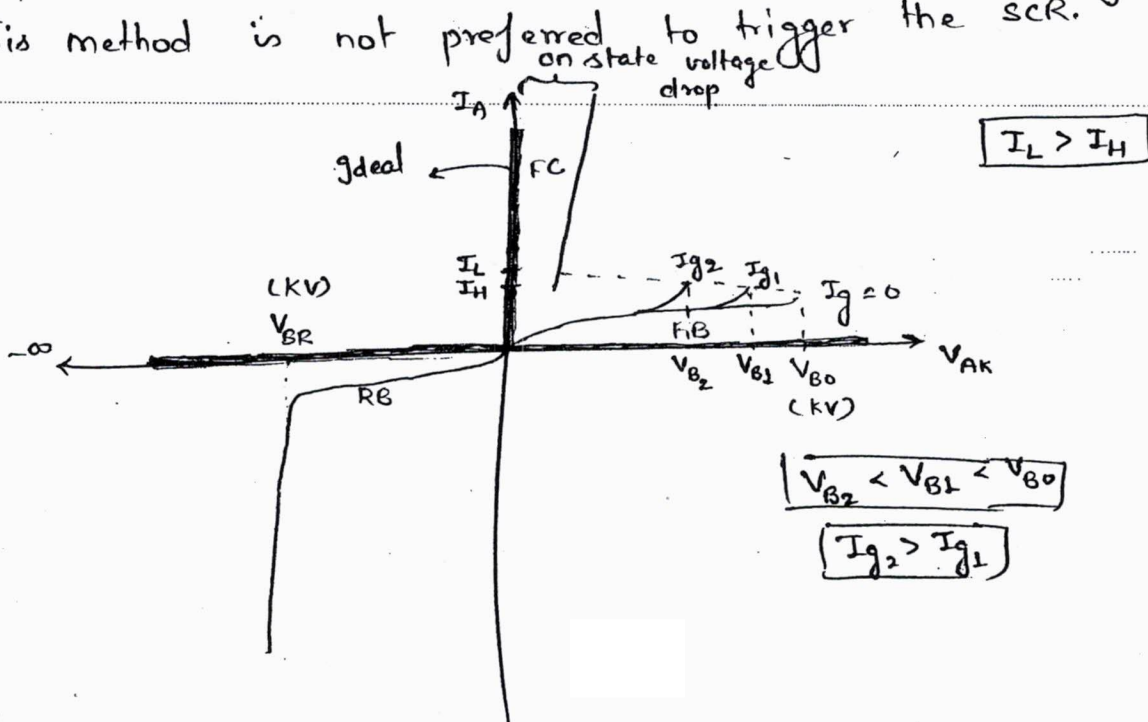 is method is not preferred to trigger the SCR.
on state voltage
drop
I_A
I_L > I_H
Ideal
FC
I_L
I_H
Ig2
Ig1
Ig = 0
(KV)
V_BR
FB
-∞
V_AK
V_B2
V_B1
V_B0
(KV)
RB
V_B2 < V_B1 < V_B0
Ig2 > Ig1